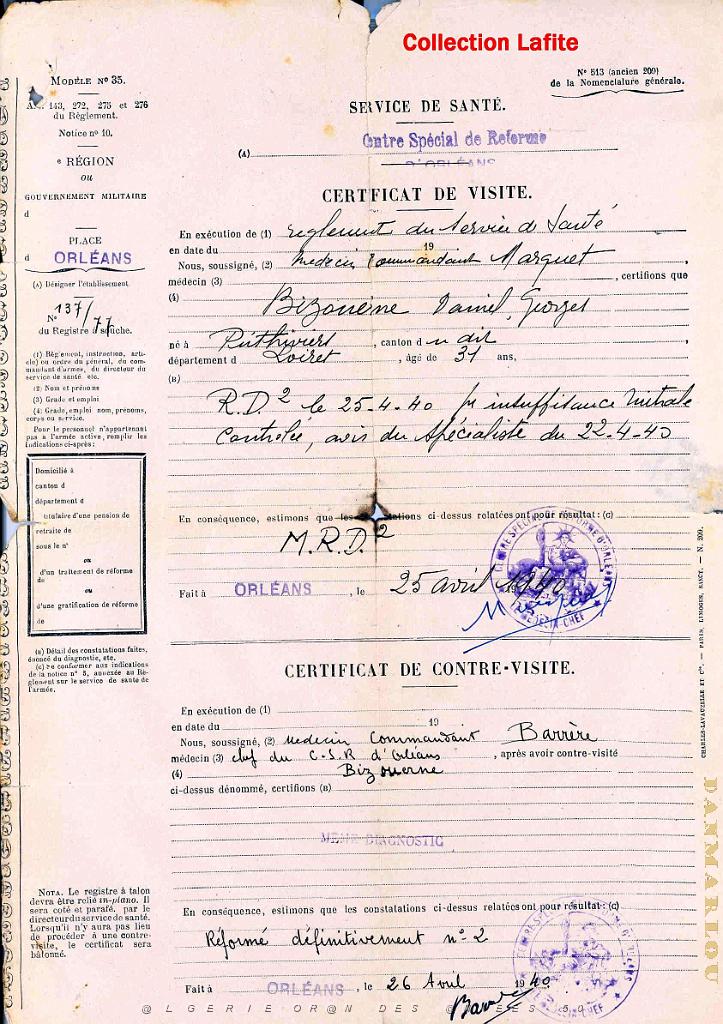 Collection Lafite
MODÈLE Nº 35.
Art. 143, 272, 275 et 276
du Règlement.
Notice nº 10.
e RÉGION
ou
GOUVERNEMENT MILITAIRE
d
PLACE
d ORLÉANS
(A) Désigner l'établissement
Nº 137/77
du Registre à souche.
(1) Règlement, instruction, arti-
cle) ou ordre du général, du com-
mandant d'armes, du directeur du
service de santé etc.
(2) Nom et prénoms
(3) Grade et emploi
(4) Grade, emploi nom, prénoms,
corps ou service.
Pour le personnel n'appartenant
pas à l'armée active, remplir les
indications ci-après:
Domicilié à
canton d
département d
titulaire d'une pension de
retraite de
sous le nº
ou
d'un traitement de réforme
de
ou
d'une gratification de réforme
de
(B) Détail des constatations faites,
énoncé du diagnostic, etc.
(C) Se conformer aux indications
de la notice nº 5, annexée au Rè-
glement sur le service de santé de
l'armée.
NOTA. Le registre à talon
devra être relié in-plano. Il
sera coté et parafé, par le
directeur du service de santé.
Lorsqu'il n'y aura pas lieu
de procéder à une contre-
visite, le certificat sera
bâtonné.
Nº 513 (ancien 209)
de la Nomenclature générale.
SERVICE DE SANTÉ.
(A) Centre Spécial de Reforme
D'ORLÉANS
CERTIFICAT DE VISITE.
En exécution de (1) reglement du Service de Santé
en date du 19
Nous, soussigné, (2) Medecin Commandant Marquet ,
médecin (3) , certifions que
(4) Bizouerne Daniel, Georges
né à Pithiviers , canton d u dit ,
département d Loiret , âgé de 31 ans,
(B)
R.D.2 le 25-4-40 pr insuffisance mitrale
Controlée, avis du Spécialiste du 22-4-40
En conséquence, estimons que les constatations ci-dessus relatées ont pour résultat: (C)
M.R.D.2
Fait à ORLÉANS , le 25 avril 1940
CENTRE SPÉCIAL DE RÉFORME D'ORLÉANS
LE MÉDECIN-CHEF
CERTIFICAT DE CONTRE-VISITE.
En exécution de (1)
en date du 19
Nous, soussigné, (2) Medecin Commandant Barrère
médecin (3) chef du C.S.R d'Orléans , après avoir contre-visité
(4) Bizouerne
ci-dessus dénommé, certifions (B)
MEME DIAGNOSTIC
En conséquence, estimons que les constatations ci-dessus relatées ont pour résultat: (C)
Réformé définitivement nº 2
Fait à ORLÉANS , le 26 Avril 1940
CENTRE SPÉCIAL DE RÉFORME D'ORLÉANS
LE MÉDECIN-CHEF
CHARLES-LAVAUZELLE ET Cie. — PARIS, LIMOGES, NANCY. — N. 209.
DAMARLOU